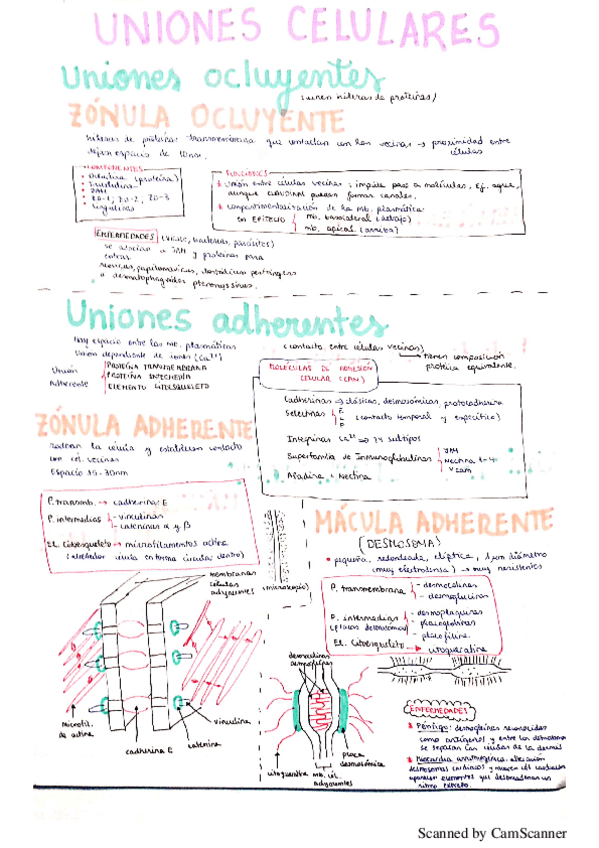 UNIONES CELULARES
Uniones ocluyentes
(unen hileras de proteínas)
ZÓNULA OCLUYENTE
hileras de proteínas transmembrana que contactan con las vecinas → proximidad entre
dejan espacio de 10nm. células
COMPONENTES
• Ocludina (proteína)
• Claudina
• JAM
• ZO-1, ZO-2, ZO-3
FUNCIONES
Unión entre células vecinas: impide paso a moléculas, Ej. agua,
aunque CLAUDINA pueden formar canales.
compartimentalización de la mb. plasmática
en EPITELIO
mb. basolateral (abajo)
mb. apical (arriba)
ENFERMEDADES (virus, bacterias, parásitos)
se asocian a JAM y proteínas para
entrar.
papilomavirus, clostridium perfringens
o dermatophagoides pteronyssinus.
Uniones adherentes
Hay espacio entre las mb. plasmáticas
Unión dependiente de iones (Ca²⁺)
(contacto entre células vecinas)
tienen composición
proteica equivalente.
Unión
Adherente
PROTEÍNA TRANSMEMBRANA
PROTEÍNA INTERMEDIA
ELEMENTO CITOESQUELETO
MOLÉCULAS DE ADHESIÓN
CELULAR (CAM)
Cadherinas → clásicas, desmosómicas, protocadherina
Selectinas
E
L
P
(contacto temporal y específico)
Integrinas Ca²⁺ → 24 subtipos
Superfamilia de Inmunoglobulinas
JAM
Nectina 1-4
VCAM
Afadina - Nectina
ZÓNULA ADHERENTE
rodean la célula y establecen contacto
con cél. vecinas
Espacio 15-20nm
P. transmb. → cadherina E
P. intermedias
- vinculinas
- cateninas α y β
EL. Citoesqueleto → microfilamentos actina
(alrededor célula en forma circular dentro)
(microscopio)
MÁCULA ADHERENTE
(DESMOSOMA)
• pequeña, redondeada, elíptica, 1μm diámetro
(muy electrodensa) → muy resistentes
P. transmembrana
- desmocolinas
- desmogleinas
P. intermedias
(placas desmosómicas)
- desmoplaquinas
- placoglobina
- placofilina
EL. Citoesqueleto →
citoqueratina
membranas
celulas
adyacentes
microfil.
de actina
cadherina E
catenina
vinculina
desmocolinas
desmogleinas
citoqueratina
mb. cél.
adyacentes
placa
desmosómica
ENFERMEDADES
Pénfigo: desmogleinas reconocidas
como antígenos y entre los desmosomas
se separan las células de la dermis
Miocardia arritmogénica: alteración
desmosomas cardiacos y mueren cél. cardiacas
aparecen elementos que desencadenan un
ritmo
Scanned by CamScanner